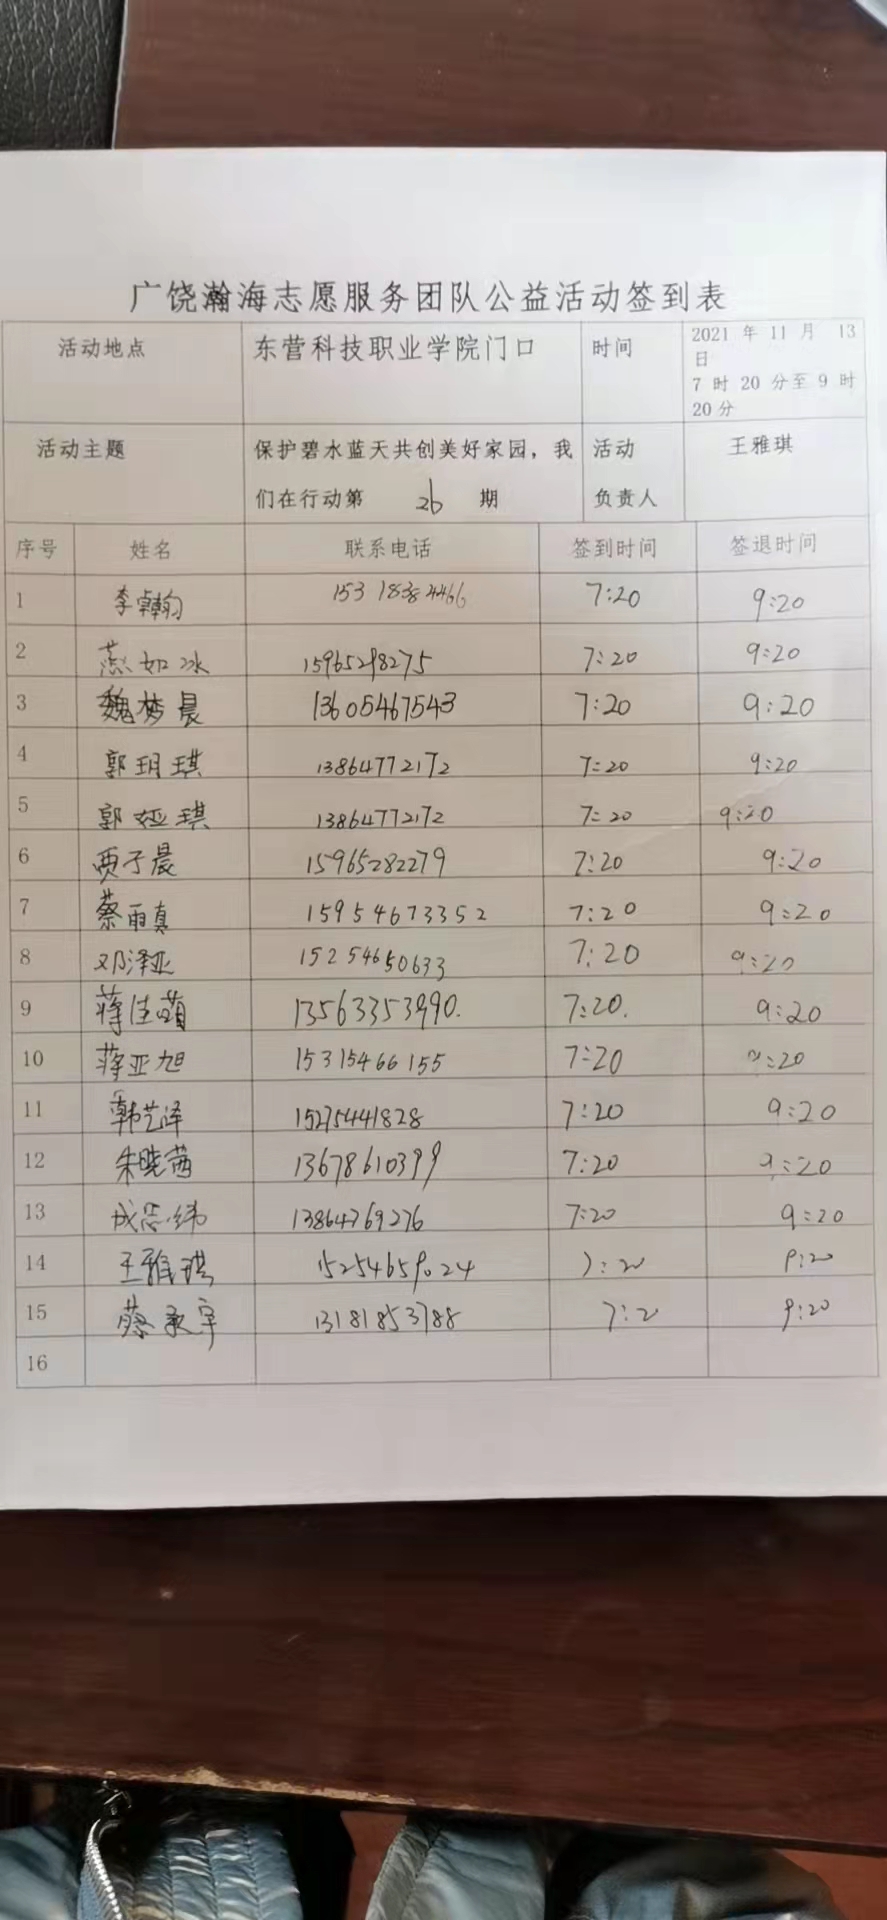 广饶瀚海志愿服务团队公益活动签到表
活动地点 东营科技职业学院门口 时间 2021 年 11 月 13
日
7 时 20 分至 9 时
20分
活动主题 保护碧水蓝天共创美好家园，我 活动 王雅琪
们在行动第 26 期 负责人
序号 姓名 联系电话 签到时间 签退时间
1 李卓翰 15318384466 7:20 9:20
2 燕如冰 15965298275 7:20 9:20
3 魏梦晨 13605467543 7:20 9:20
4 郭玥琪 13864772172 7:20 9:20
5 郭娅琪 13864772172 7:20 9:20
6 贾子晨 15965282279 7:20 9:20
7 蔡雨真 15954673352 7:20 9:20
8 邓泽亚 15254650633 7:20 9:20
9 蒋佳萌 13563353990. 7:20. 9:20
10 蒋亚旭 15315466155 7:20 9:20
11 韩艺泽 15275441828 7:20 9:20
12 朱晓茜 13678610399 7:20 9:20
13 成志纬 13864769276 7:20 9:20
14 王雅琪 15254659024 7:20 9:20
15 蔡承宇 13181853788 7:2 9:20
16